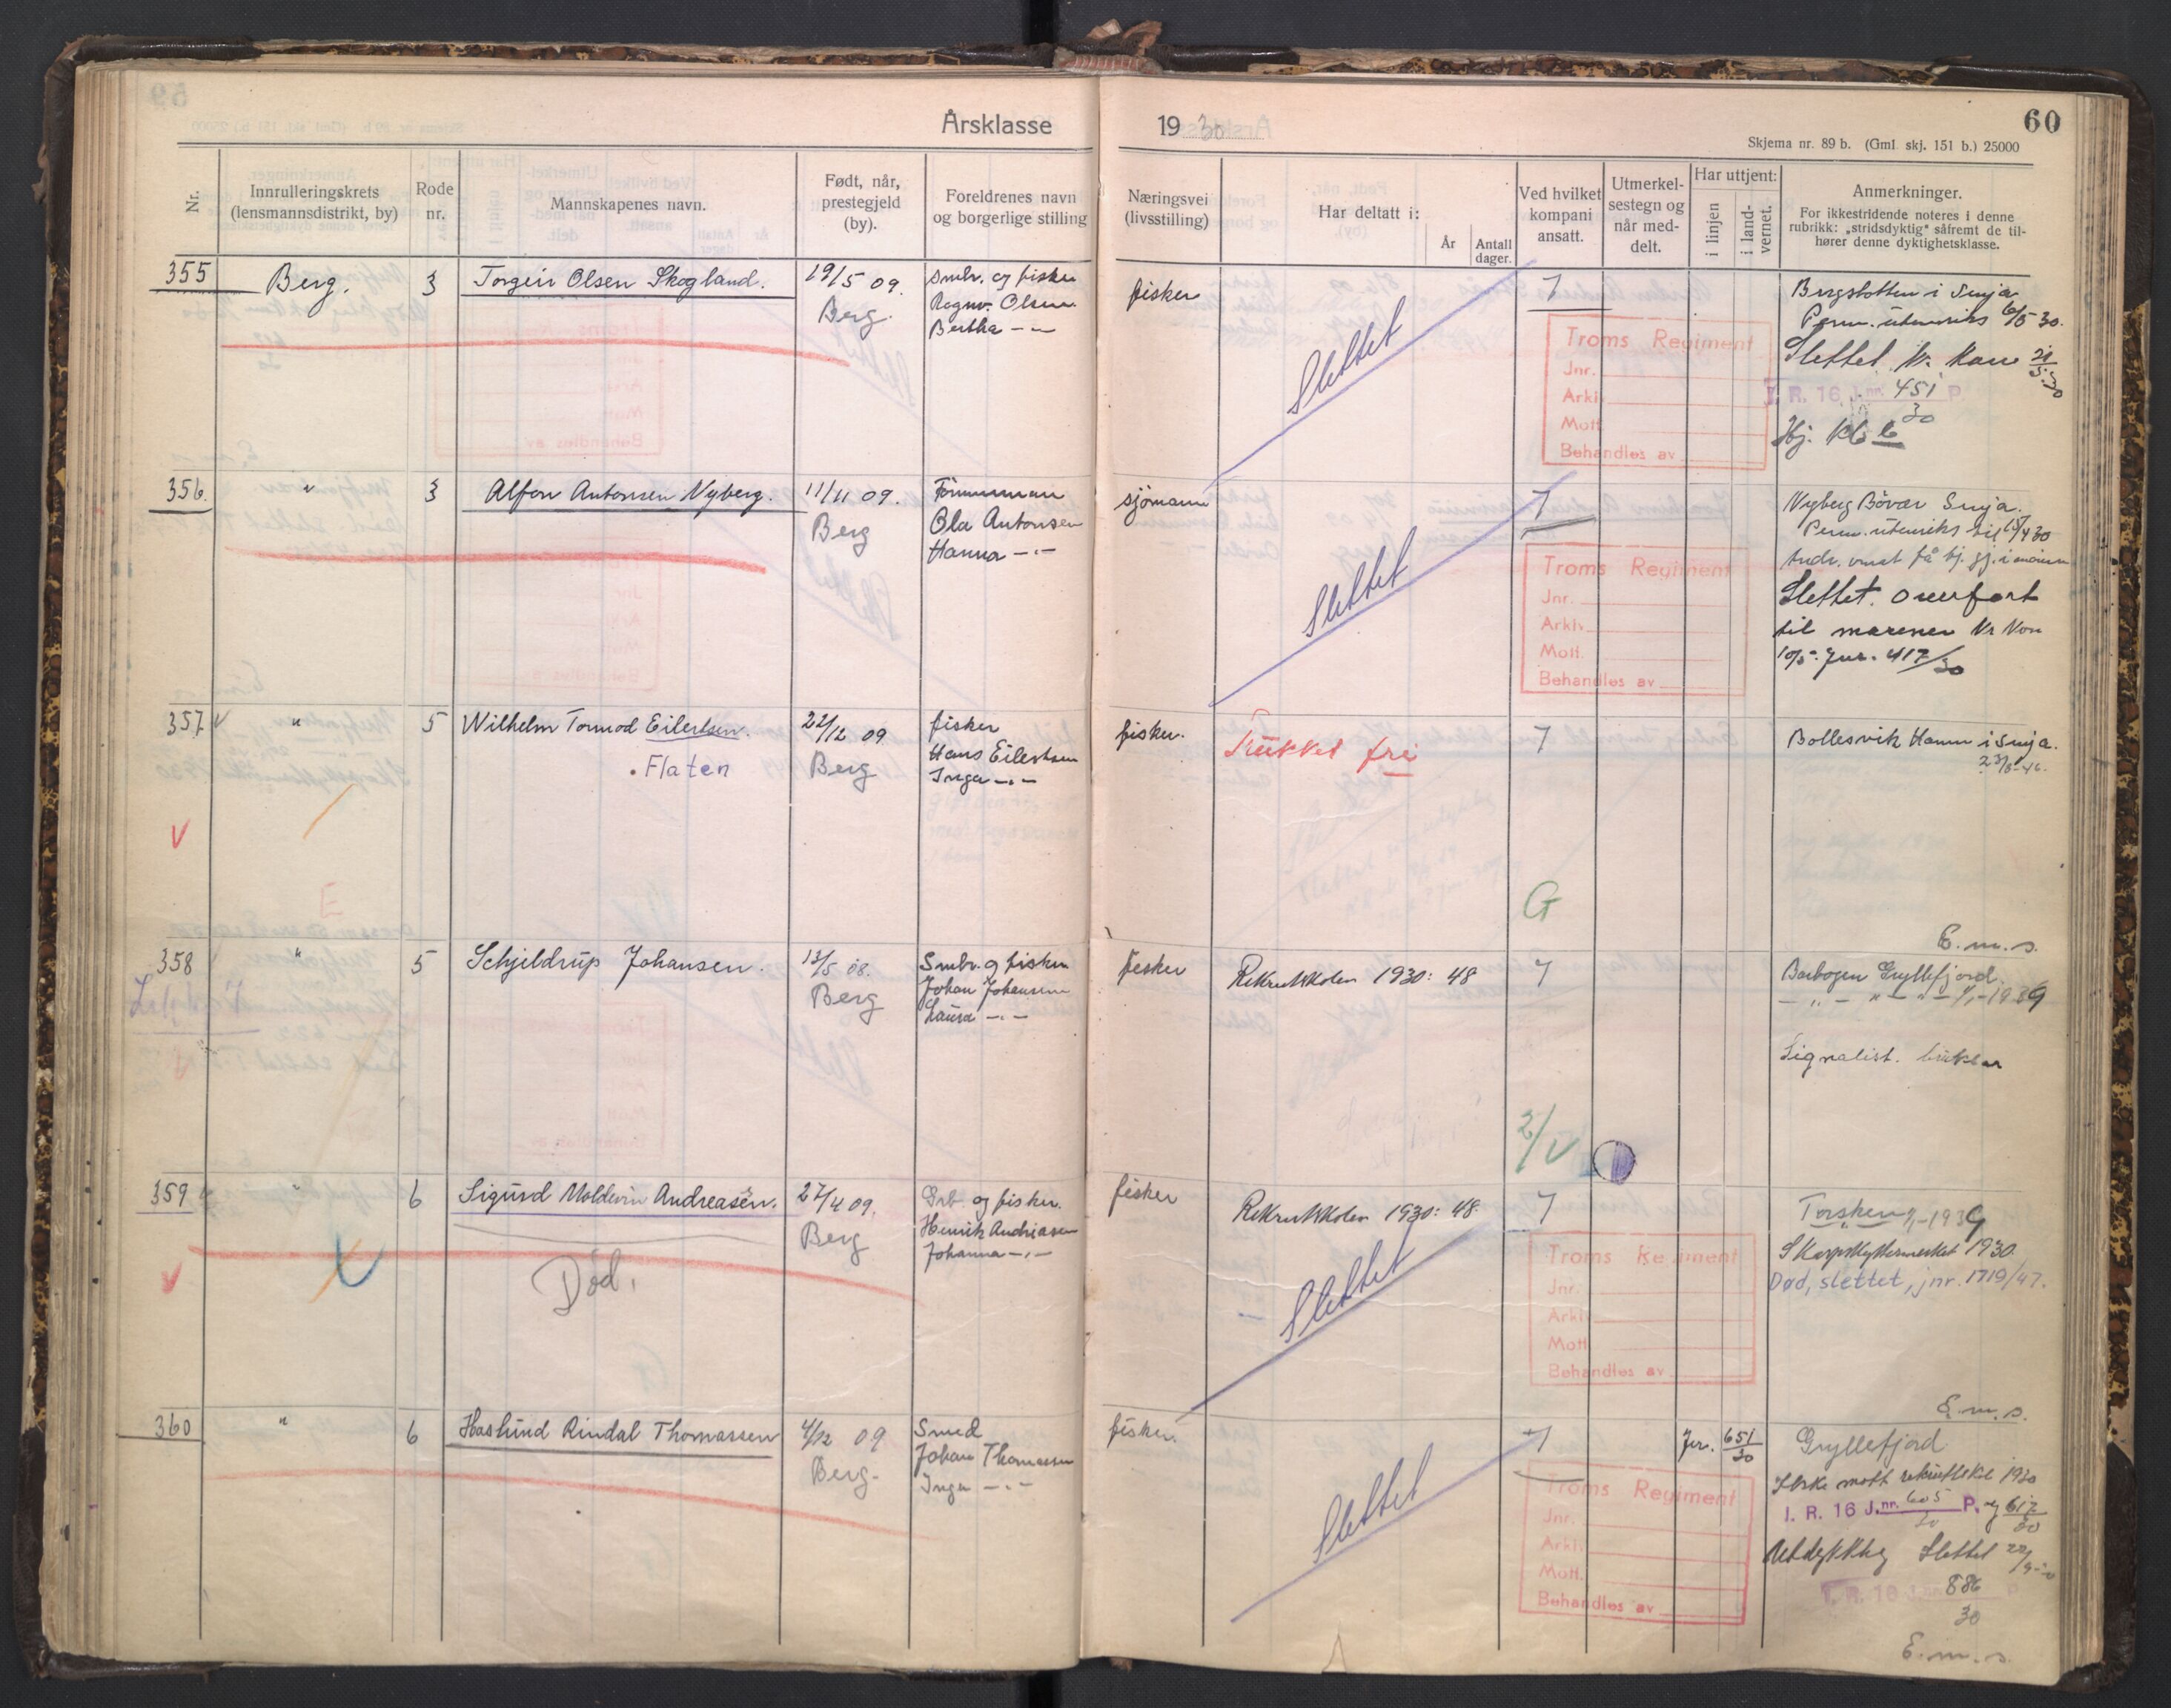 Årsklasse 1930
60
Skjema nr. 89 b. (Gml skj. 151 b.) 25000
Nr.
Innrulleringskrets (lensmannsdistrikt, by)
Rode nr.
Mannskapenes navn.
Født, når, prestegjeld (by).
Foreldrenes navn og borgerlige stilling
Næringsvei (livsstilling)
Har deltatt i:
År
Antall dager.
Ved hvilket kompani ansatt.
Utmerkelsestegn og når meddelt.
Har uttjent:
i linjen
i landvernet.
Anmerkninger.
For ikkestridende noteres i denne rubrikk: „stridsdyktig“ såfremt de tilhører denne dyktighetsklasse.
355 Berg. 3 Torgeir Olsen Skogland. 19/5 09. Smbr. og fisker fisker 7
Berg. Ragnv. Olsen
Bertha – –
Slettet
Troms Regiment
Jnr.
Arkiv
Mott.
Behandles av
Bergsbotten i Senja
Perm. utenriks 6/5 30.
Slettet
I. R. 16 J.nr. 451 P.
30
356. " 3 Alfon Antonsen Nyberg. 11/11 09. sjømann 7
Berg Ola Antonsen
Hanna – " –
Slettet
Troms Regiment
Jnr.
Arkiv
Mott.
Behandles av
Nyberg Bövær Senja.
Perm. utenriks til
Slettet. Overført
til marenen
10/5. Jnr. 417/30
357 v " 5 Wilhelm Tormod Eilertsen. 22/12 09 fisker fisker. 7
. Flaten Berg Hans Eilertsen
Inga – " –
Trukket fri
G
Bollesvik Hamn i Senja.
E. m. s.
358 " 5 Schjeldrup Johansen. 13/5 08. Smbr. og fisker fisker Rekrutskolen 1930: 48 7
Berg Johan Johansen
Laura – " –
2/V
Barbogen Gryllefjord.
Signalist.
359 " 6 Sigurd Moldevin Andreasen. 27/4 09. Grb. og fisker. fisker Rekrutskolen 1930: 48 7
Berg Henrik Andreasen
Johanna – " –
Død.
Slettet
Troms Regiment
Jnr.
Arkiv
Mott.
Behandles av
Torsken 1939
Skarpskyttermerket 1930.
Død, slettet, jnr. 1719/47.
E. m. s.
360 " 6 Haslund Rindal Thomassen 4/12 09 Smed fisker. 7 Jnr. 651/30
Berg. Johan Thomassen
Inga – " –
Slettet
Troms Regiment
Jnr.
Arkiv
Mott.
Behandles av
Gryllefjord
Ikke møtt rekrutskol 1930
I. R. 16 J.nr. 605 P. og 617/30
30
Udyktig Slettet
I. R. 16 J.nr. 886 P
30
E. m. s.